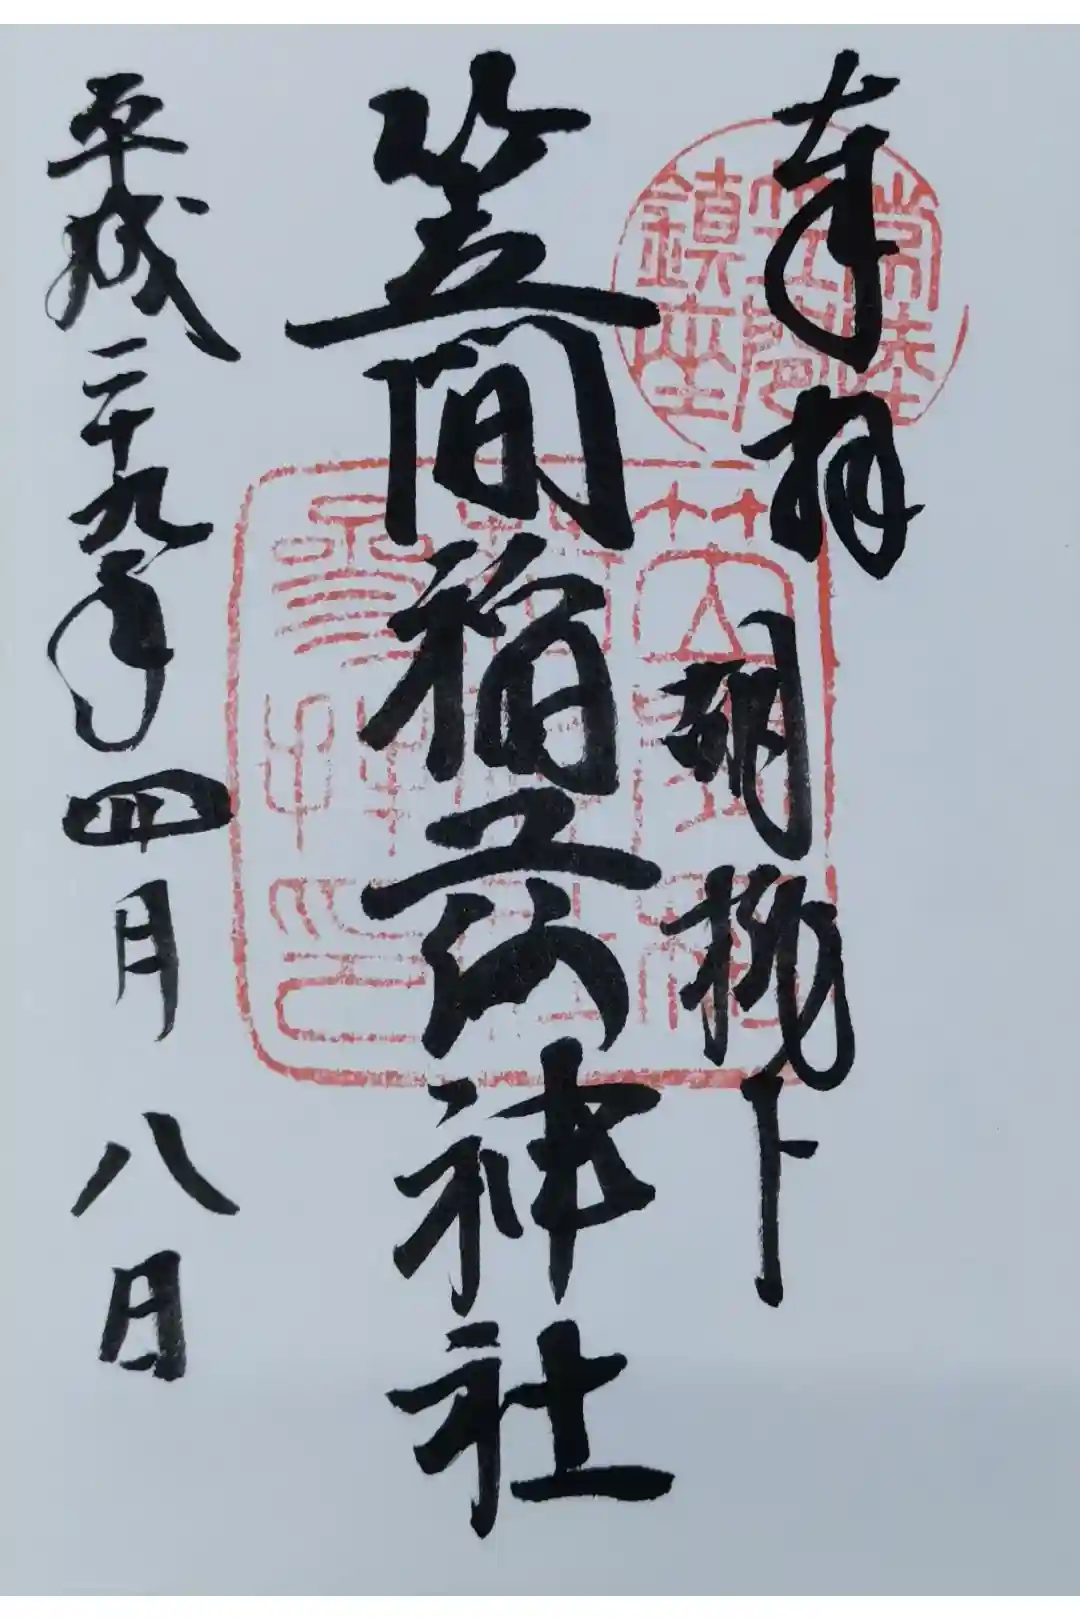 奉拝
胡桃下
笠間稲荷神社
平成二十九年四月八日
常陸
笠間
鎮座